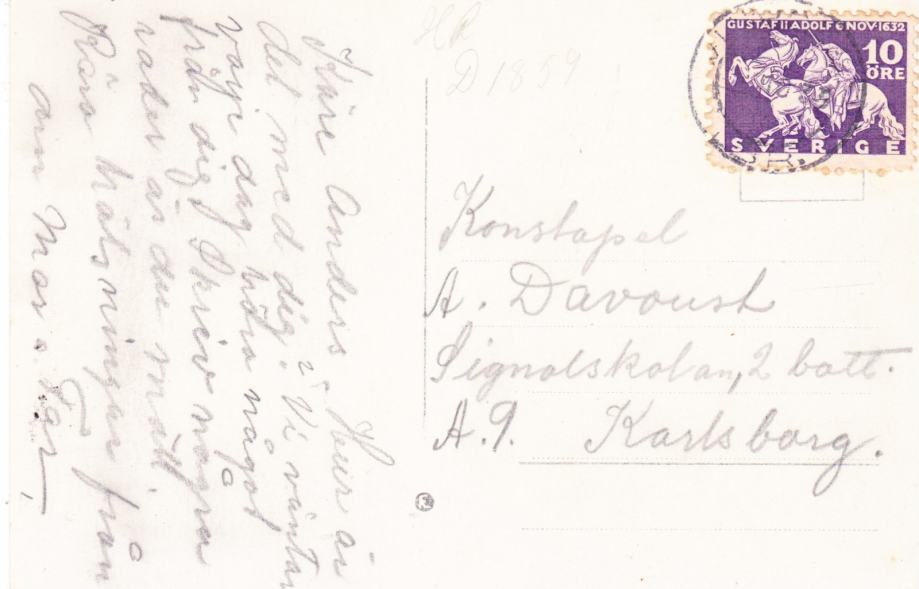 Käre Anders. Hur är
det med dig? Vi väntar
varje dag höra något
från dig. Skriv några
rader är du snäll.
Kära hälsningar från
din Mor o Far.
D 1859
GUSTAF II ADOLF 6 NOV·1632
10
ÖRE
SVERIGE
Konstapel
A. Davoust
Signalskolan, 2 batt.
A. 9. Karlsborg.